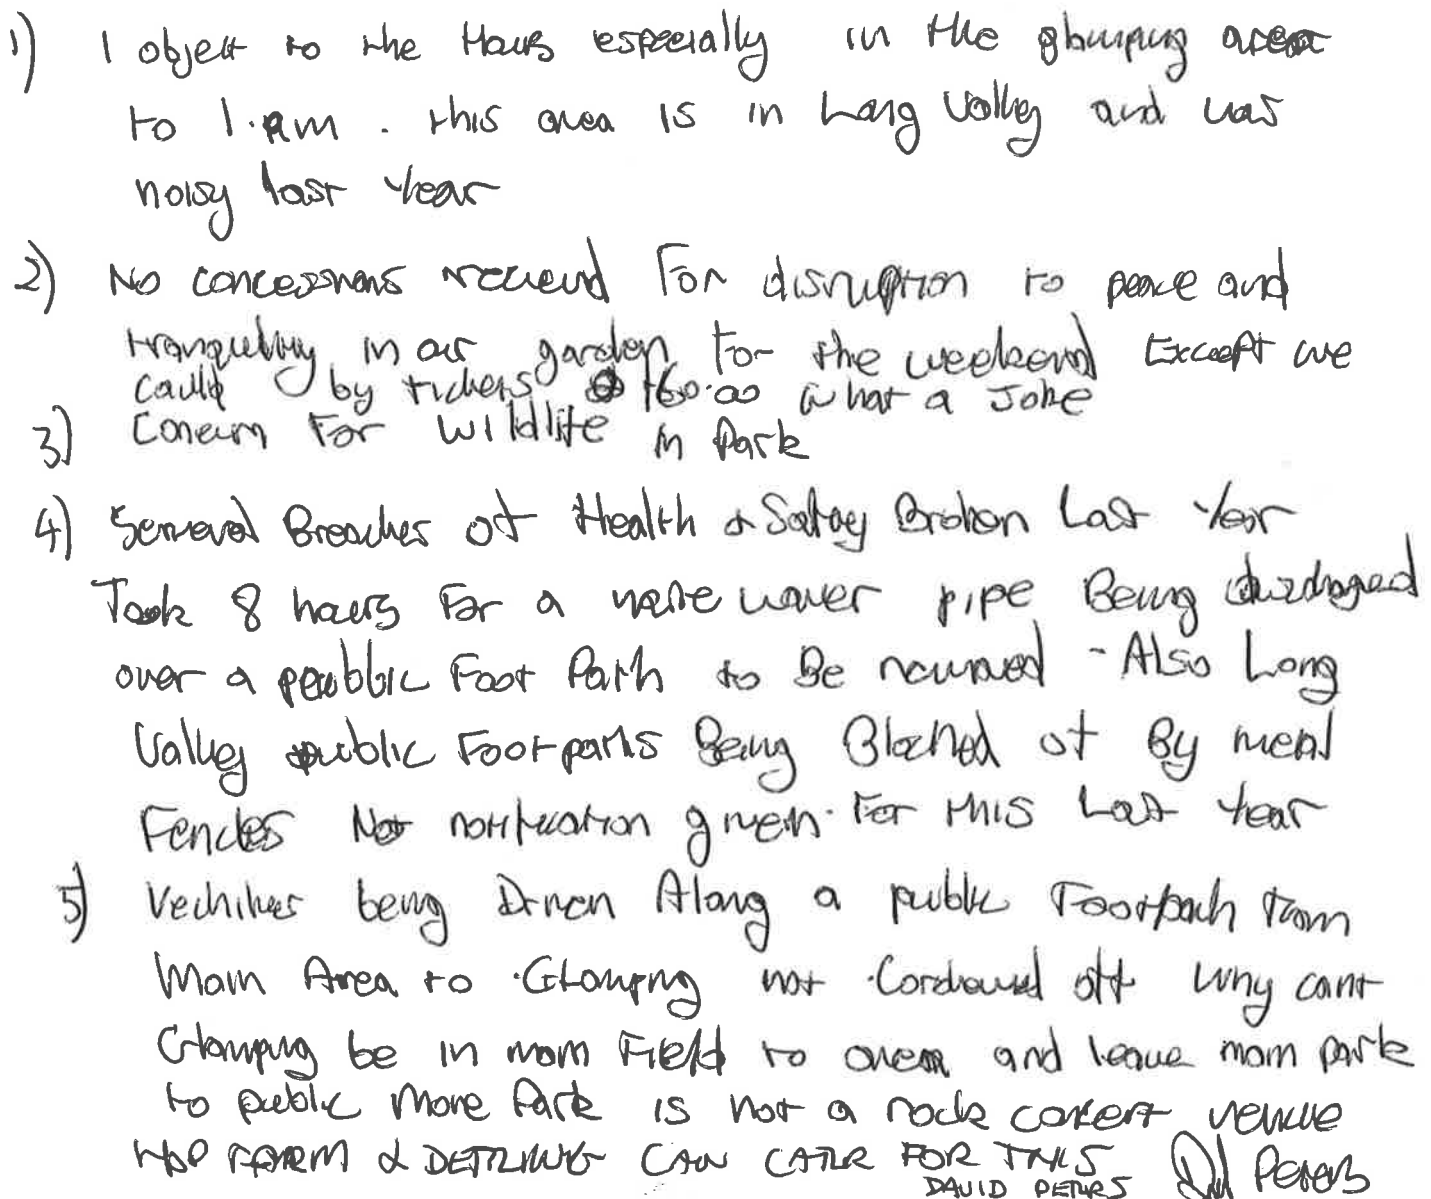 1) I object to the Hours especially in the glamping area
to 1.am. this area is in Lang Valley and was
noisy last year
2) No concessions received For disruption to peace and
tranquility in our garden For the weekend Except we
could by tickets @ 160.00 what a Joke
3) Concern For Wildlife in Park
4) Several Breaches of Health & Safety Broken Last Year
Took 8 hours For a waste water pipe Being
over a public Foot Path to Be removed - Also Long
Valley public Footpaths Being Blocked of By metal
Fences Not notification given. For this Last Year
5) Vechiles being Driven Along a public Footpath From
Main Area to Glamping not Cordoned off Why cant
Glamping be in main Field to arena and leave main park
to public Mote Park is not a rock concert venue
HOP FARM & DETLING CAN CATER FOR THIS
DAVID PETERS D Peters